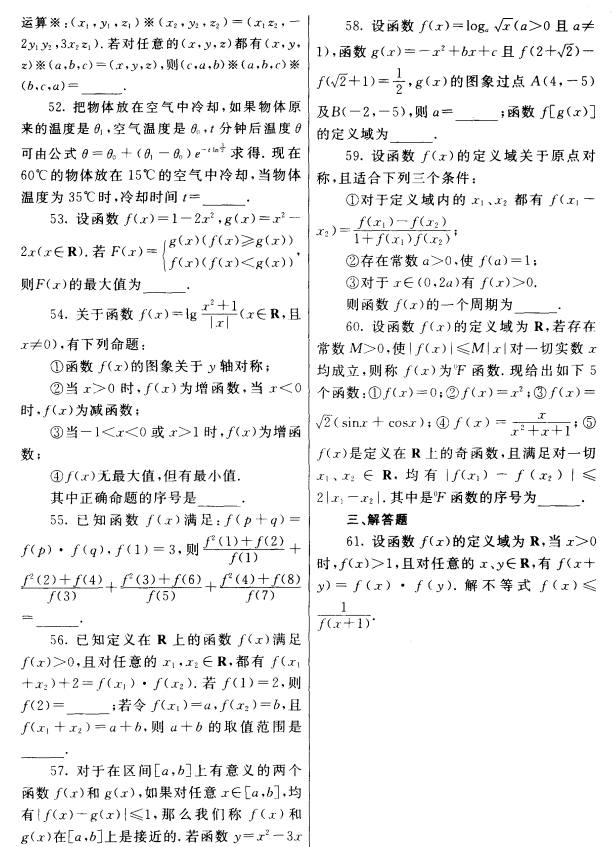 运算※:(x₁,y₁,z₁)※(x₂,y₂,z₂)=(x₁z₂,−
2y₁y₂,3x₂z₁).若对任意的(x,y,z)都有(x,y,
z)※(a,b,c)=(x,y,z),则(c,a,b)※(a,b,c)※
(b,c,a)=______.
52. 把物体放在空气中冷却,如果物体原
来的温度是θ₁,空气温度是θ₀,t分钟后温度θ
可由公式θ=θ₀+(θ₁−θ₀)e^{−t ln(3/2)}求得.现在
60℃的物体放在15℃的空气中冷却,当物体
温度为35℃时,冷却时间t=______.
53. 设函数f(x)=1−2x²,g(x)=x²−
2x(x∈R).若F(x)={g(x)(f(x)≥g(x)) f(x)(f(x)<g(x)),
则F(x)的最大值为______.
54. 关于函数f(x)=lg (x²+1)/|x| (x∈R,且
x≠0),有下列命题:
①函数f(x)的图象关于y轴对称;
②当x>0时,f(x)为增函数,当x<0
时,f(x)为减函数;
③当−1<x<0或x>1时,f(x)为增函
数;
④f(x)无最大值,但有最小值.
其中正确命题的序号是______.
55. 已知函数f(x)满足:f(p+q)=
f(p)·f(q),f(1)=3,则 (f²(1)+f(2))/f(1) +
(f²(2)+f(4))/f(3) + (f²(3)+f(6))/f(5) + (f²(4)+f(8))/f(7)
=______.
56. 已知定义在R上的函数f(x)满足
f(x)>0,且对任意的x₁,x₂∈R,都有f(x₁
+x₂)+2=f(x₁)·f(x₂).若f(1)=2,则
f(2)=______;若令f(x₁)=a,f(x₂)=b,且
f(x₁+x₂)=a+b,则a+b的取值范围是
______.
57. 对于在区间[a,b]上有意义的两个
函数f(x)和g(x),如果对任意x∈[a,b],均
有|f(x)−g(x)|≤1,那么我们称f(x)和
g(x)在[a,b]上是接近的.若函数y=x²−3x
58. 设函数f(x)=logₐ√x(a>0且a≠
1),函数g(x)=−x²+bx+c且f(2+√2)−
f(√2+1)=1/2,g(x)的图象过点A(4,−5)
及B(−2,−5),则a=______;函数f[g(x)]
的定义域为______.
59. 设函数f(x)的定义域关于原点对
称,且适合下列三个条件:
①对于定义域内的x₁、x₂都有f(x₁−
x₂)=(f(x₁)−f(x₂))/(1+f(x₁)f(x₂));
②存在常数a>0,使f(a)=1;
③对于x∈(0,2a)有f(x)>0.
则函数f(x)的一个周期为______.
60. 设函数f(x)的定义域为R,若存在
常数M>0,使|f(x)|≤M|x|对一切实数x
均成立,则称f(x)为Ψ函数.现给出如下5
个函数:①f(x)=0;②f(x)=x²;③f(x)=
√2(sinx+cosx);④f(x)=x/(x²+x+1);⑤
f(x)是定义在R上的奇函数,且满足对一切
x₁、x₂∈R,均有|f(x₁)−f(x₂)|≤
2|x₁−x₂|.其中是Ψ函数的序号为______.
三、解答题
61. 设函数f(x)的定义域为R,当x>0
时,f(x)>1,且对任意的x、y∈R,有f(x+
y)=f(x)·f(y).解不等式f(x)≤
1/f(x+1).